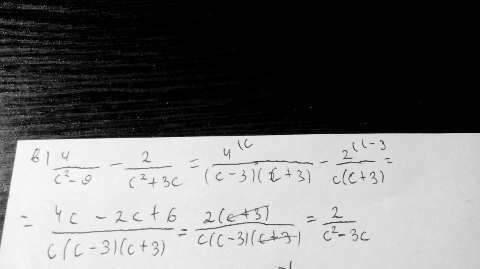 в) 4/(c²-9) - 2/(c²+3c) = 4^(c/((c-3)(c+3)) - 2^(c-3/(c(c+3)) =
= (4c - 2c + 6)/(c(c-3)(c+3)) = 2(c+3)/(c(c-3)(c+3)) = 2/(c²-3c)